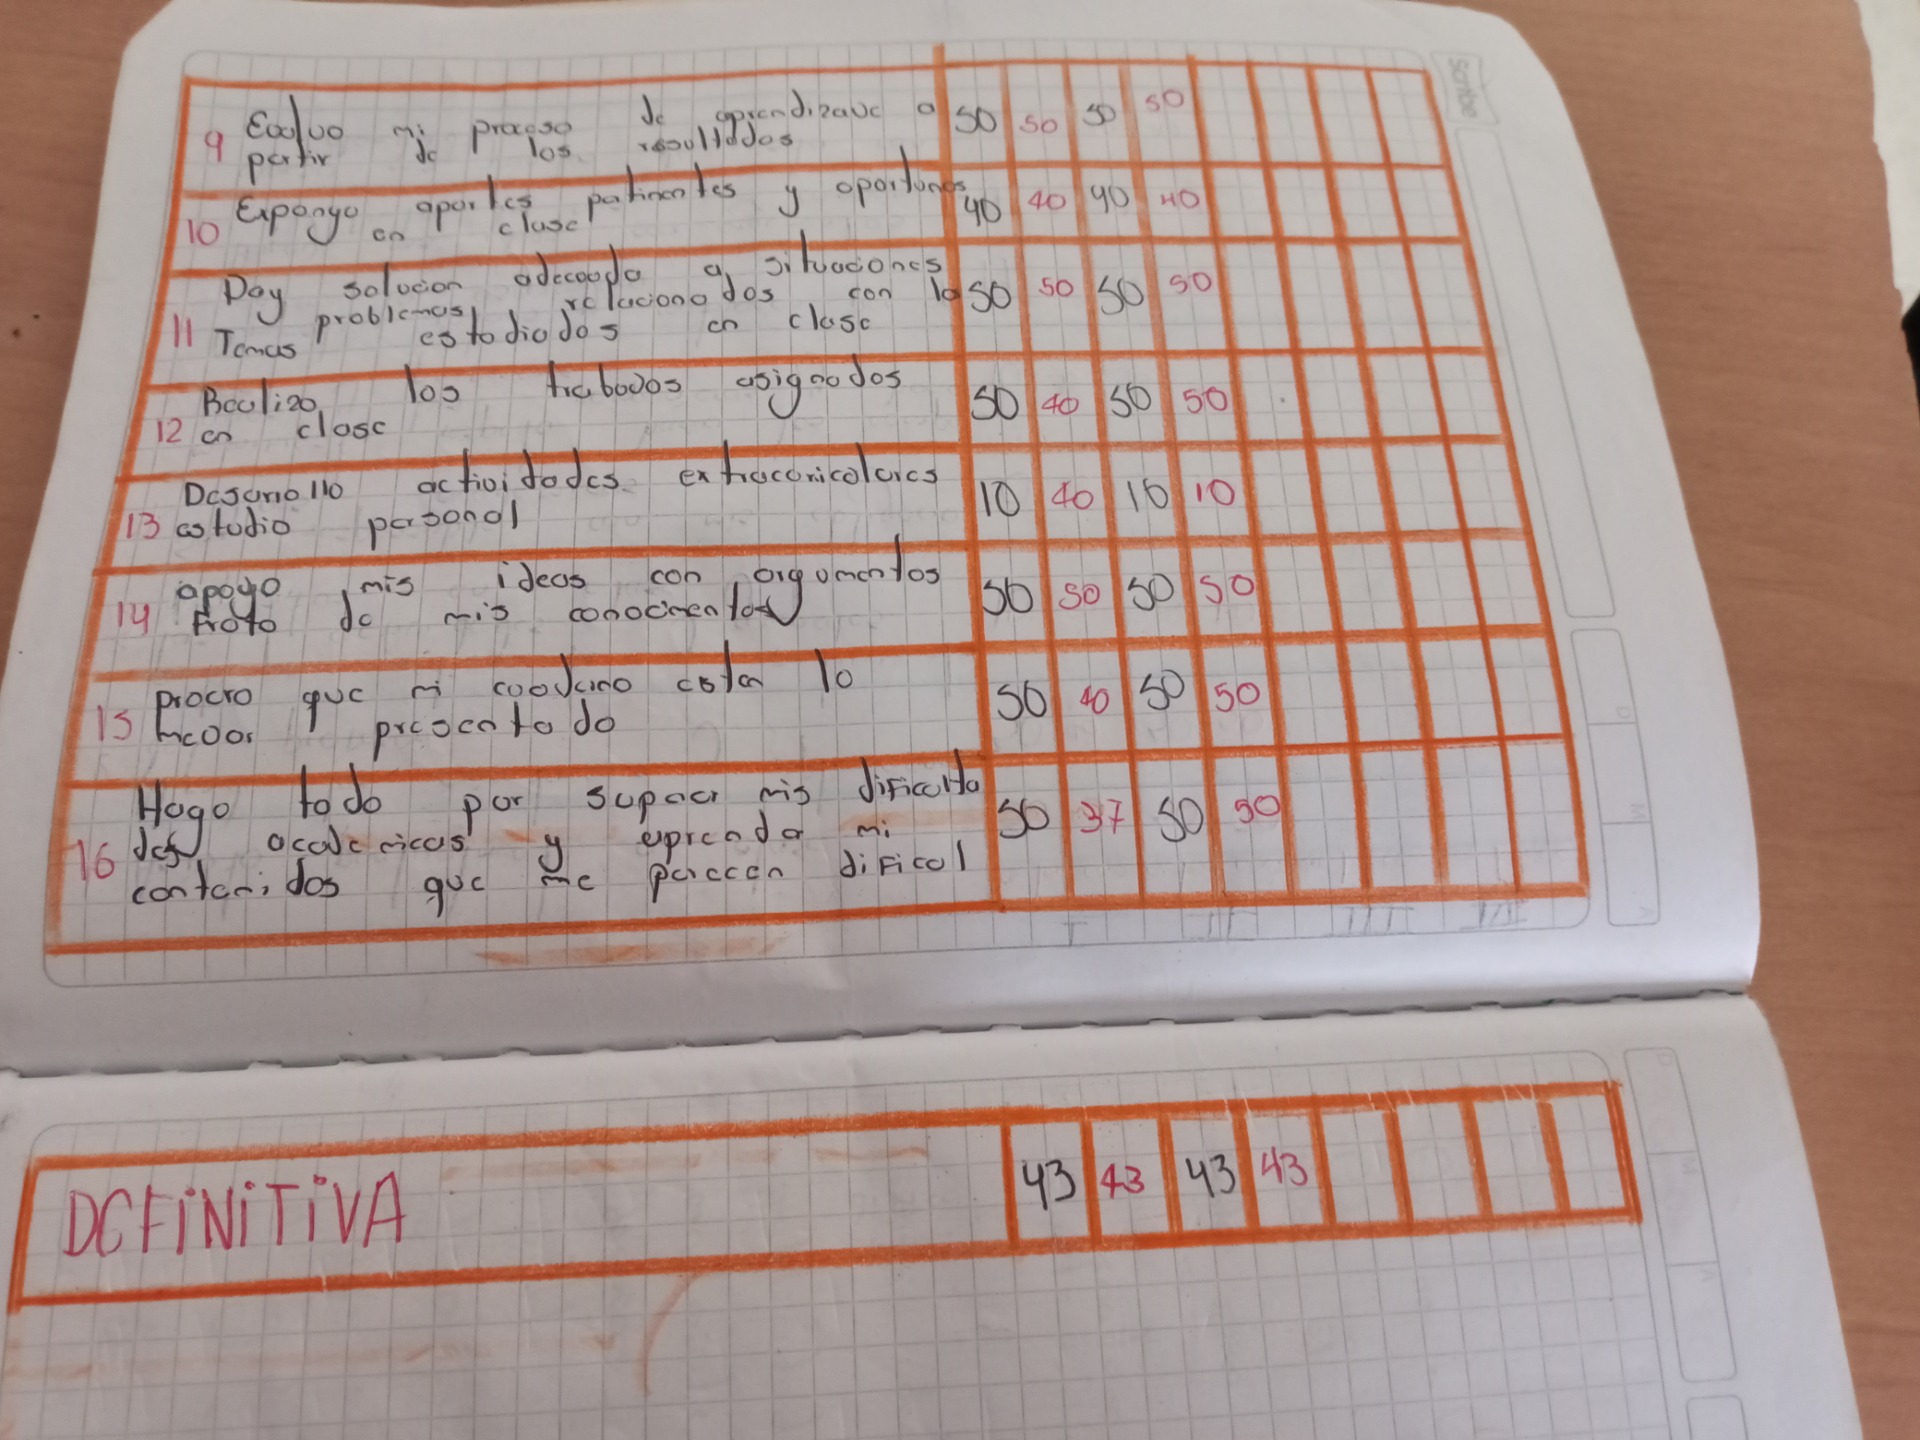 Scribe
9 Evaluo mi proceso de aprendizaue a 50 50 50 50
partir de los resultados
10 Expongo aportes patinentes y oportunos 40 40 40 40
en clase
Doy solucion adecuada a situaciones
problemas relacionados con lo 50 50 50 50
11 Temas estodiados en clase
Realizo los trabaos asignados 50 40 50 50
12 en clase
Desarrollo actividades extracoricolares 10 40 10 10
13 estudio personal
apoyo mis ideas con argumentos 50 50 50 50
14 froto de mis conocimentos
procro que mi coaderno esten lo 50 40 50 50
15 meoor presentado
Hago todo por superar mis dificulta 50 37 50 50
des academicas y eprender mi
16 contenidos que me parecen dificol
I II III IIII
DEFINITIVA 43 43 43 43